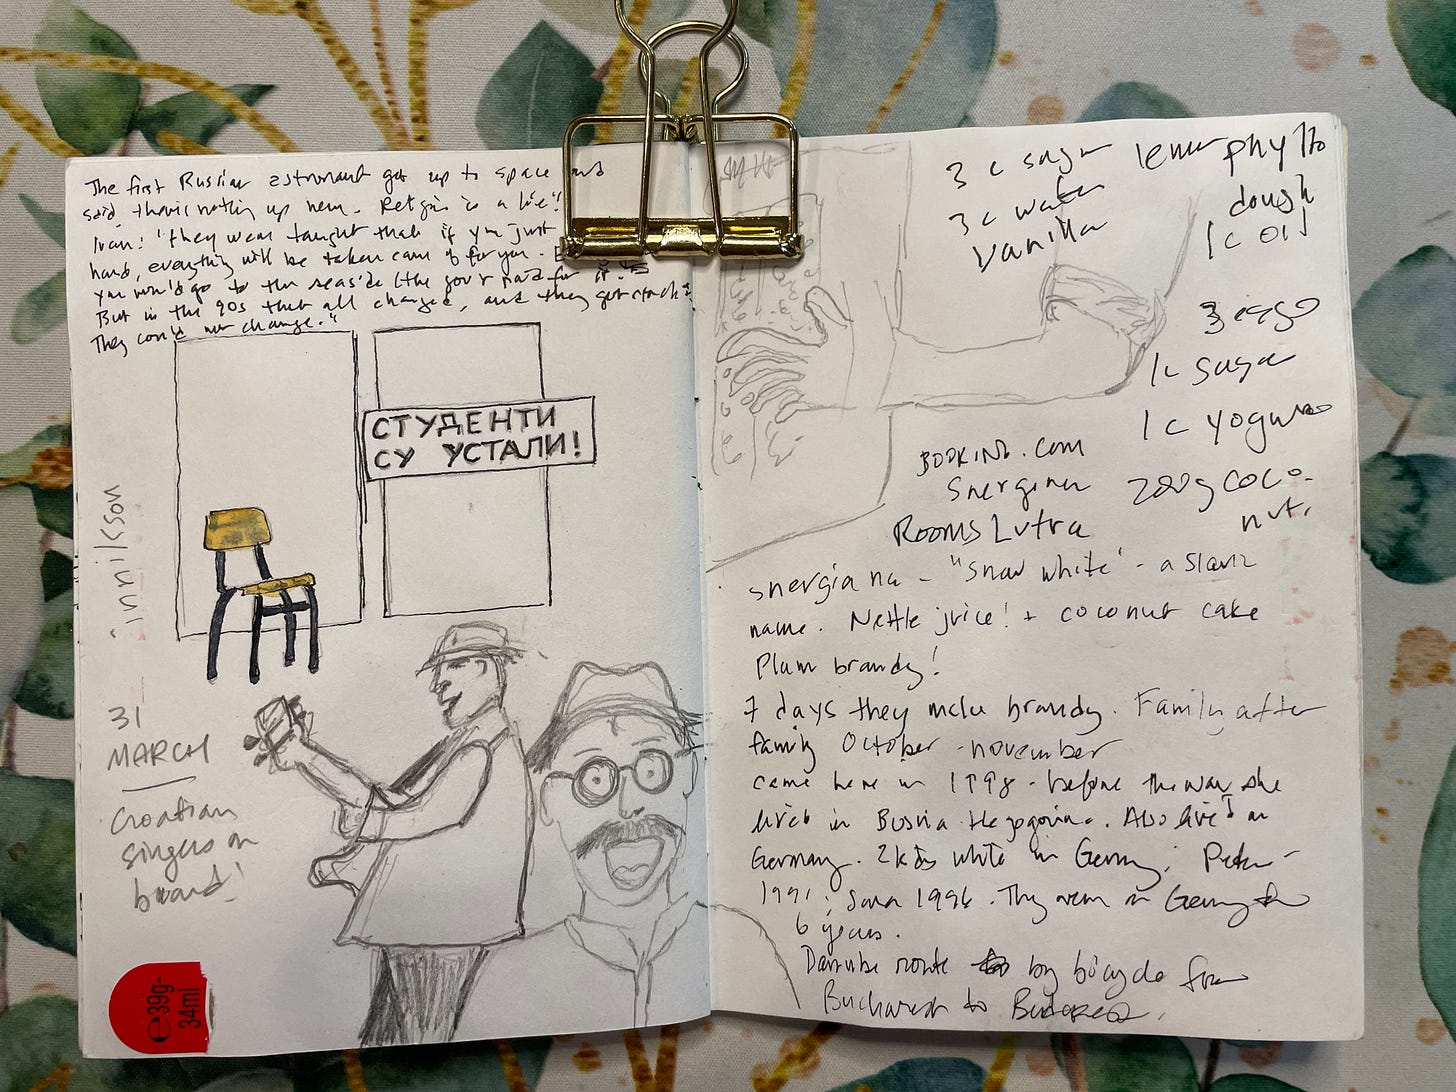 The first Russian astronaut got up to space and
said there's nothing up here. Religion is a lie!"
Ivan: "they were taught that if you just
hard, everything will be taken care of for you.
you would go to the seaside (the gov't paid for it.
But in the 90s that all changed, and they got stuck
They could not change."
СТУДЕНТИ
СУ УСТАЛИ!
31
MARCH
Croatian
singers on
board!
e39g-
34ml
3 c sugar
3 c water
vanilla
phyllo
dough
1 c oil
3 eggs
1 c sugar
1 c yogurt
200g coco-
nut.
BOOKING.com
Rooms Lutra
"Snow white" - a Slavic
name. Nettle juice! + coconut cake
Plum brandy!
7 days they make brandy. Family after
family October - november
came here in 1998 - before the war she
lived in Bosnia Hezogovina. Also lived in
Germany. 2 kids while in Germany; Peter -
1991; Sara 1996. They were in Germany for
6 years.
Danube route by bicycle from
Bucharest to Budapest.